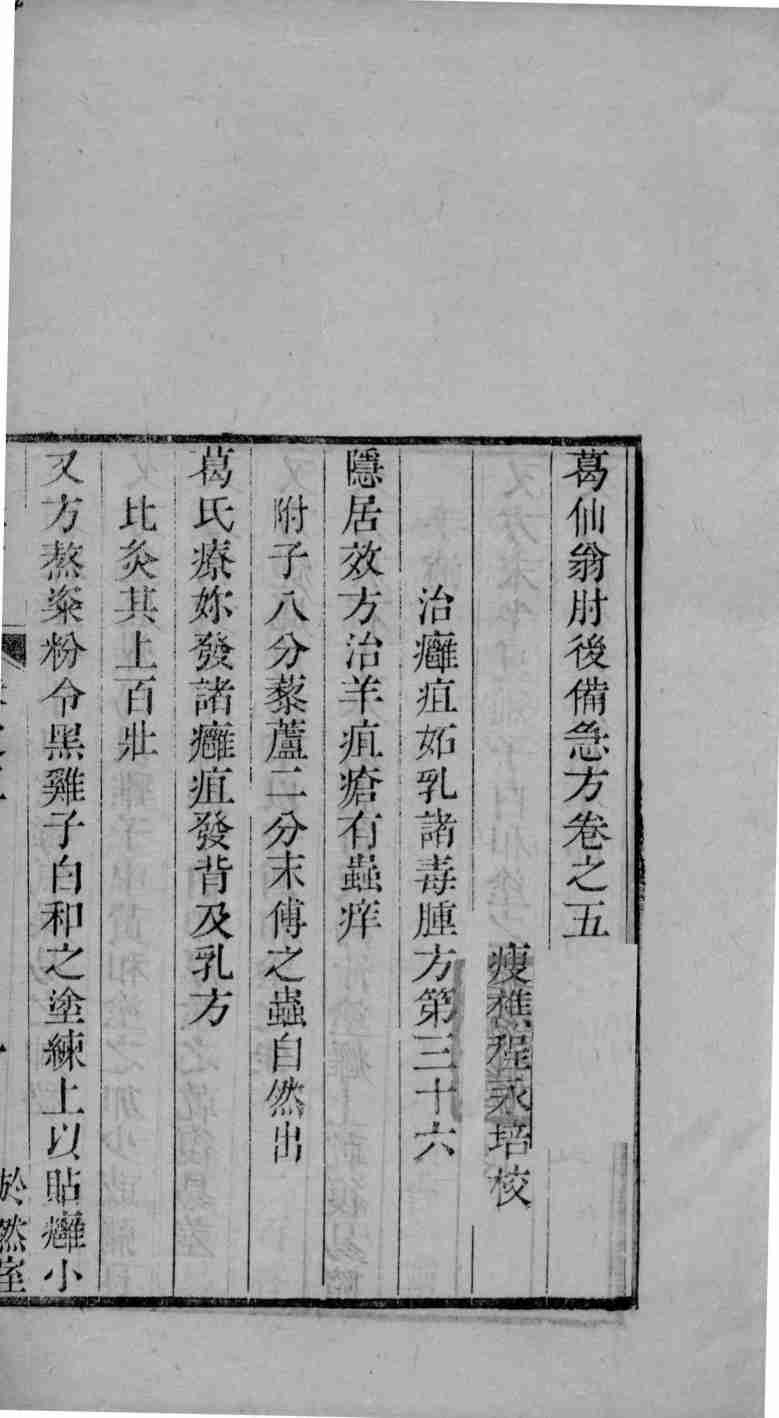 葛仙翁肘後備急方卷之五
瘦樵程永培校
治癰疽妬乳諸毒腫方第三十六
隱居效方治羊疽瘡有蟲痒
附子八分藜蘆二分末傅之蟲自然出
葛氏療妳發諸癰疽發背及乳方
比灸其上百壯
又方熬粢粉令黑雞子白和之塗練上以貼癰小
於然室